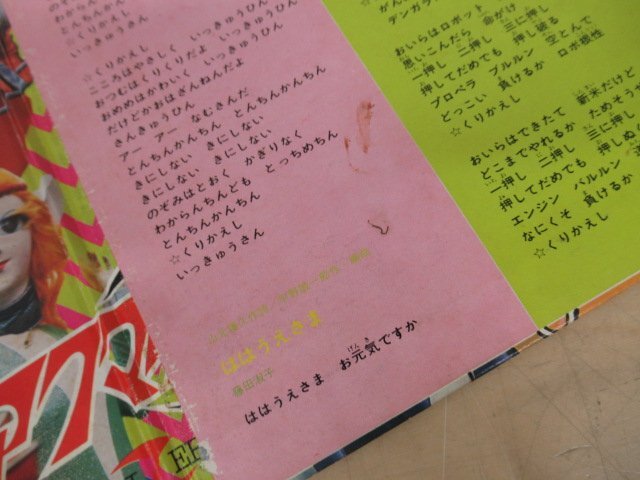 とんちんかんちん
いっきゅうさん
☆くりかえし
こころはやさしく　いっきゅうひん
おつむはくりくりだよ　いっきゅうひん
おめめはかわいく　いっきゅうひん
だけどかおはざんねんだよ
さんきゅうひん
アー　アー　なむさんだ
とんちんかんちん　とんちんかんちん
きにしない　きにしない　きにしない
きにしない　きにしない
のぞみはとおく　かぎりなく
わからんちんども　とっちめちん
とんちんかんちん
☆くりかえし
いっきゅうさん
ははうえさま
藤田淑子
ははうえさま　お元気ですか
デンガラ
☆くりかえし
おいらはロボット　命がけ
思いこんだら　三に押し
一押し　二押し　押し破る
押してだめでも　空とんで
プロペラ　ブルルン　ロボ根性
どっこい　負けるか
☆くりかえし
おいらはできたて　新米だけど
どこまでやれるか　ためそう
一押し　二押し　三に押し
押してだめでも　押しぬ
エンジン　バルルン
なにくそ　負けるか
☆くりかえし